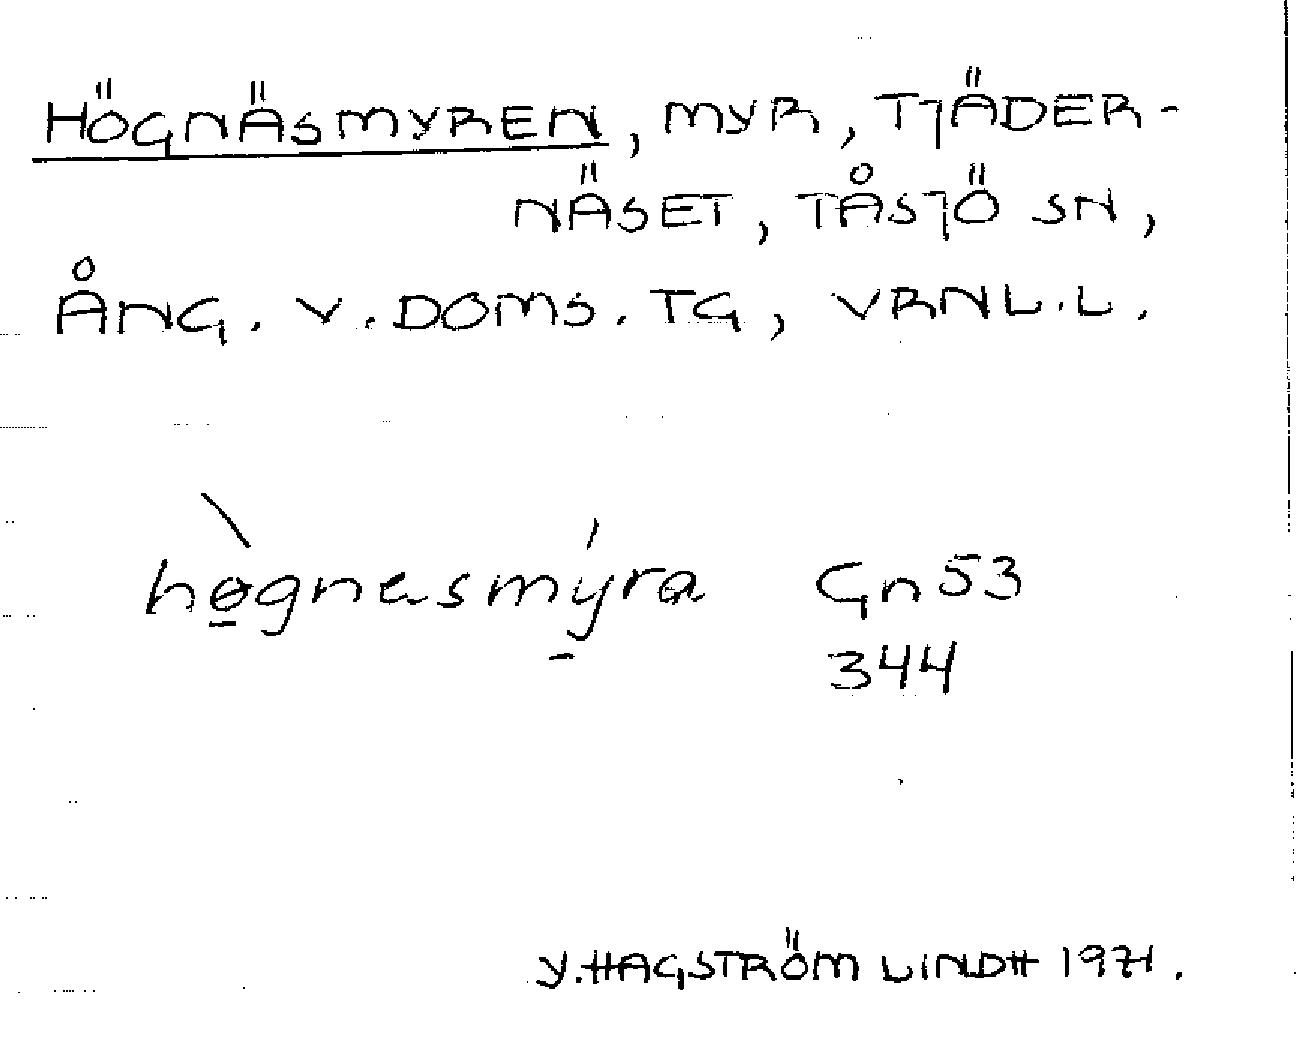 HÖGNÄSMYREN, MYR, TJÄDER-
NÄSET, TÅSJÖ SN,
ÅNG. V. DOMS. TG, VRNL.L.
hø̠̀gnasmý̠ra Gn53
344
Y. HAGSTRÖM LINDH 1971.